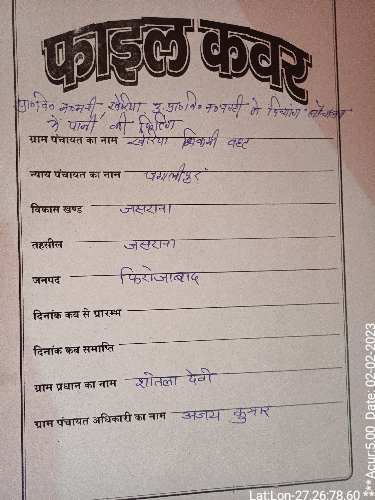 फाइल कवर
प्रा०वि० नगमरी, खेरिया, उ०प्रा०वि० के दिव्यांग शौचालय
में पानी की फिटिंग
ग्राम पंचायत का नाम खेरिया
न्याय पंचायत का नाम
विकास खण्ड जसराना
तहसील जसराना
जनपद फिरोजाबाद
दिनांक कव से प्रारम्भ
दिनांक कब समाप्ति
ग्राम प्रधान का नाम शीतला देवी
ग्राम पंचायत अधिकारी का नाम अजय कुमार
Lat:Lon-27.26:78.60
***Acur:5.00 Date: 02-02-2023